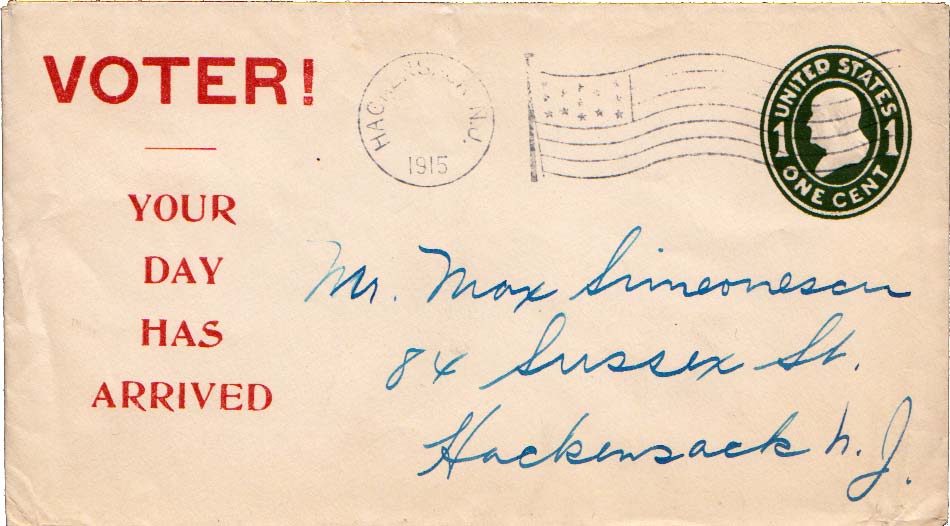 VOTER!
YOUR
DAY
HAS
ARRIVED
HACKENSACK N.J.
1915
UNITED STATES
1 1
ONE CENT
Mr. Max Simeonescu
84 Sussex St.
Hackensack N. J.